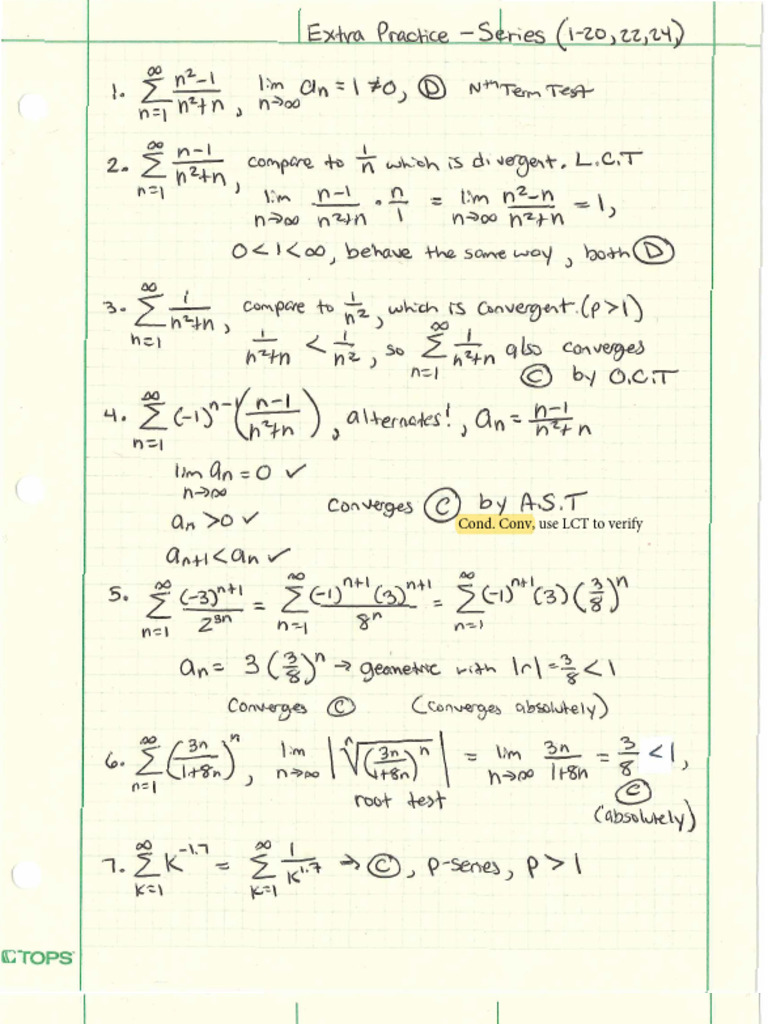 Extra Practice - Series (1-20,22,24,)
1. ∞∑n=1 (n²-1)/(n²+n), lim n→∞ an = 1 ≠ 0, Ⓓ Nth Term Test
2. ∞∑n=1 (n-1)/(n²+n), compare to 1/n which is divergent. L.C.T
lim n→∞ (n-1)/(n²+n) · n/1 = lim n→∞ (n²-n)/(n²+n) = 1,
0<1<∞, behave the same way, both Ⓓ
3. ∞∑n=1 1/(n²+n), compare to 1/n², which is convergent. (p>1)
1/(n²+n) < 1/n², so ∞∑n=1 1/(n²+n) also converges
Ⓒ by O.C.T
4. ∞∑n=1 (-1)ⁿ⁻¹((n-1)/(n²+n)), alternates!, an = (n-1)/(n²+n)
lim n→∞ an = 0 ✓
Converges Ⓒ by A.S.T
Cond. Conv, use LCT to verify
an >0 ✓
an+1 < an ✓
5. ∞∑n=1 (-3)ⁿ⁺¹/2³ⁿ = ∞∑n=1 (-1)ⁿ⁺¹(3)ⁿ⁺¹/8ⁿ = ∞∑n=1 (-1)ⁿ⁺¹(3)(3/8)ⁿ
an = 3(3/8)ⁿ → geometric with |r|=3/8 < 1
Converges Ⓒ (Converges absolutely)
6. ∞∑n=1 (3n/(1+8n))ⁿ, lim n→∞ |ⁿ√(3n/(1+8n))ⁿ| = lim n→∞ 3n/(1+8n) = 3/8 < 1,
root test Ⓒ
(absolutely)
7. ∞∑k=1 k⁻¹·⁷ = ∞∑k=1 1/k¹·⁷ → Ⓒ, p-series, p > 1
TOPS